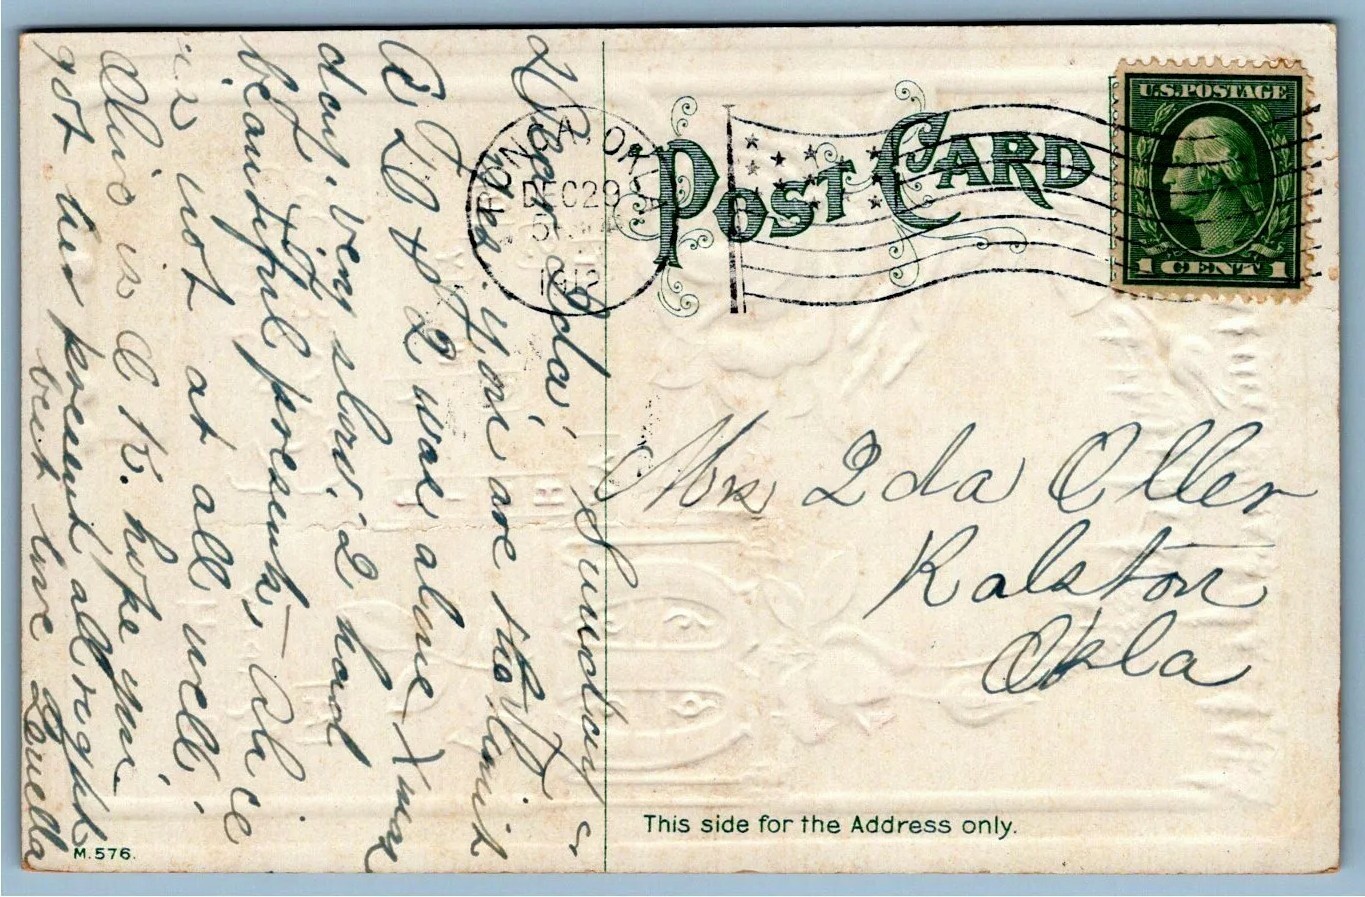 U.S. POSTAGE
1 CENT 1
PONCA OKLA
DEC 29
1912
POST CARD
Mrs Ida Oller
Ralston
Okla
This side for the Address only.
M.576.
Sunday
Dear Ida,
you are the limit
G W & I was alone Xmas
day, very slow. I had
lot
beautiful presents, Alice
is not at all well,
Chis is O K. hope you
got her present all right
best love Louella